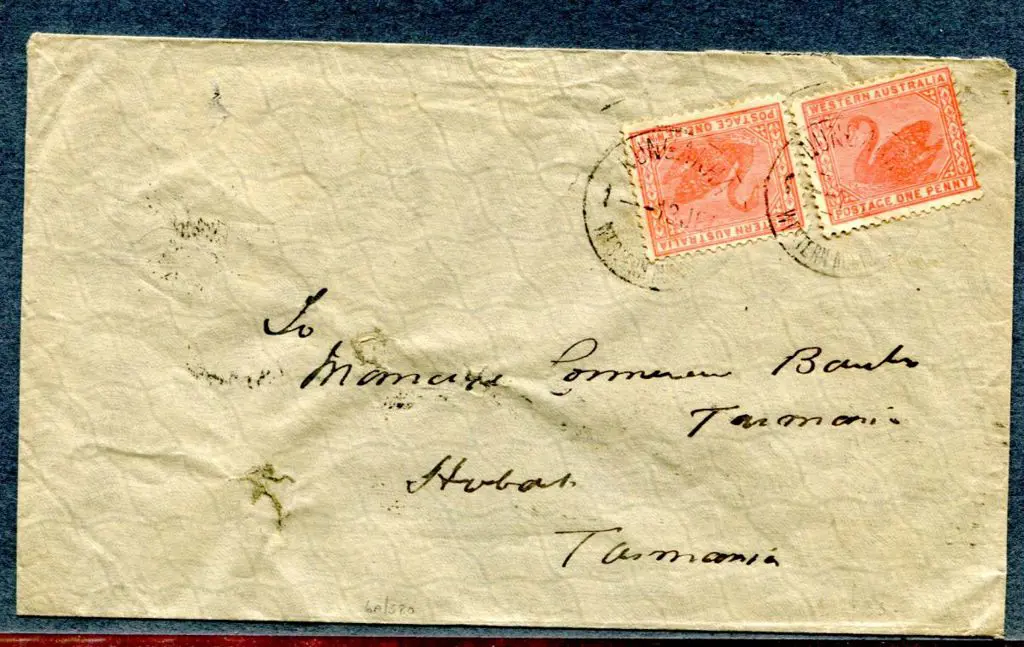 WESTERN AUSTRALIA
POSTAGE ONE PENNY
POSTAGE ONE PENNY
WESTERN AUSTRALIA
To
Manager Commercial Bank
Tasmania
Hobart
Tasmania